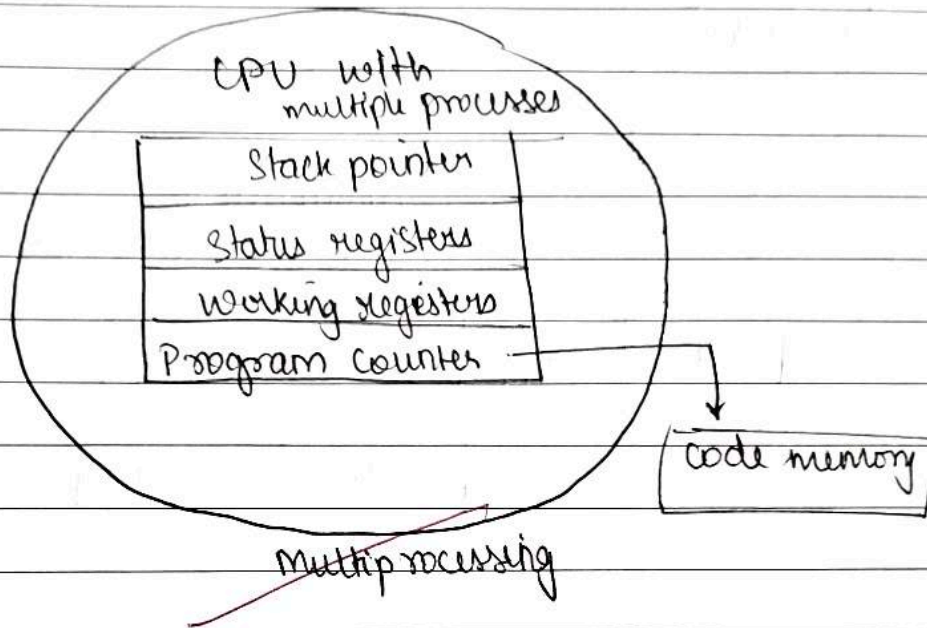 CPU with
multiple processes
Stack pointer
Status registers
Working registers
Program Counter
code memory
Multiprocessing